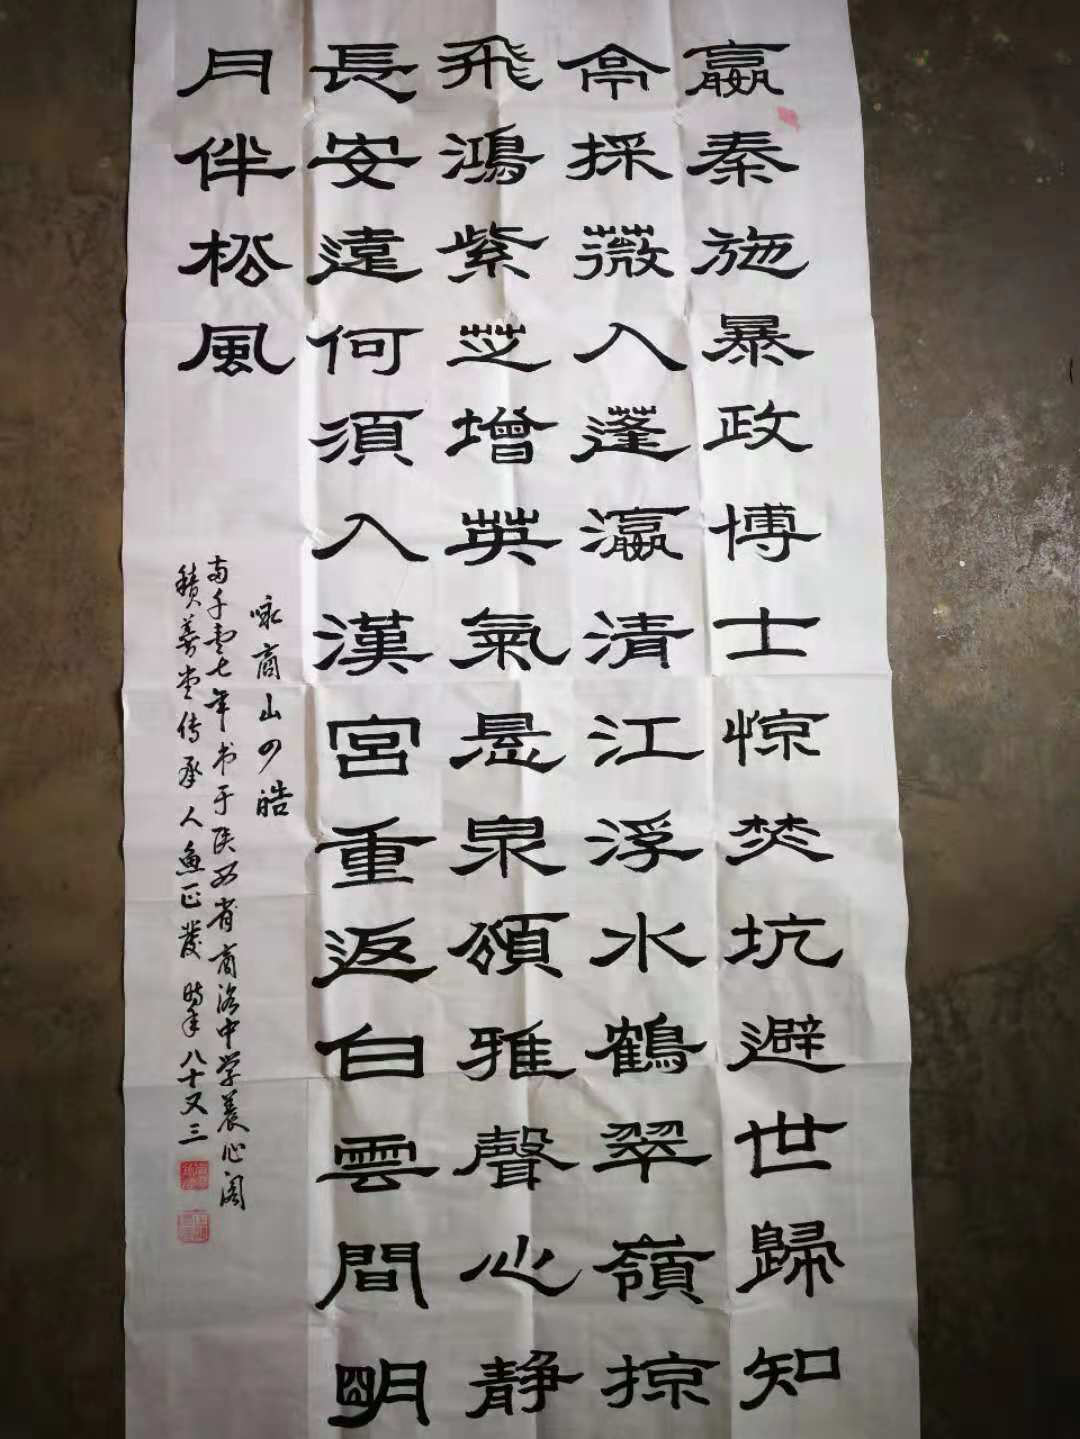 嬴秦施暴政博士惊焚坑避世歸知
命採薇入蓬瀛清江浮水鶴翠嶺掠
飛鴻紫芝增英氣悬泉頌雅聲心静
長安遠何須入漢宮重返白雲間明
月伴松風
咏商山四皓
両千零七年书于陕西省商洛中学養心阁
積善堂传承人鱼正發 时年八十又三